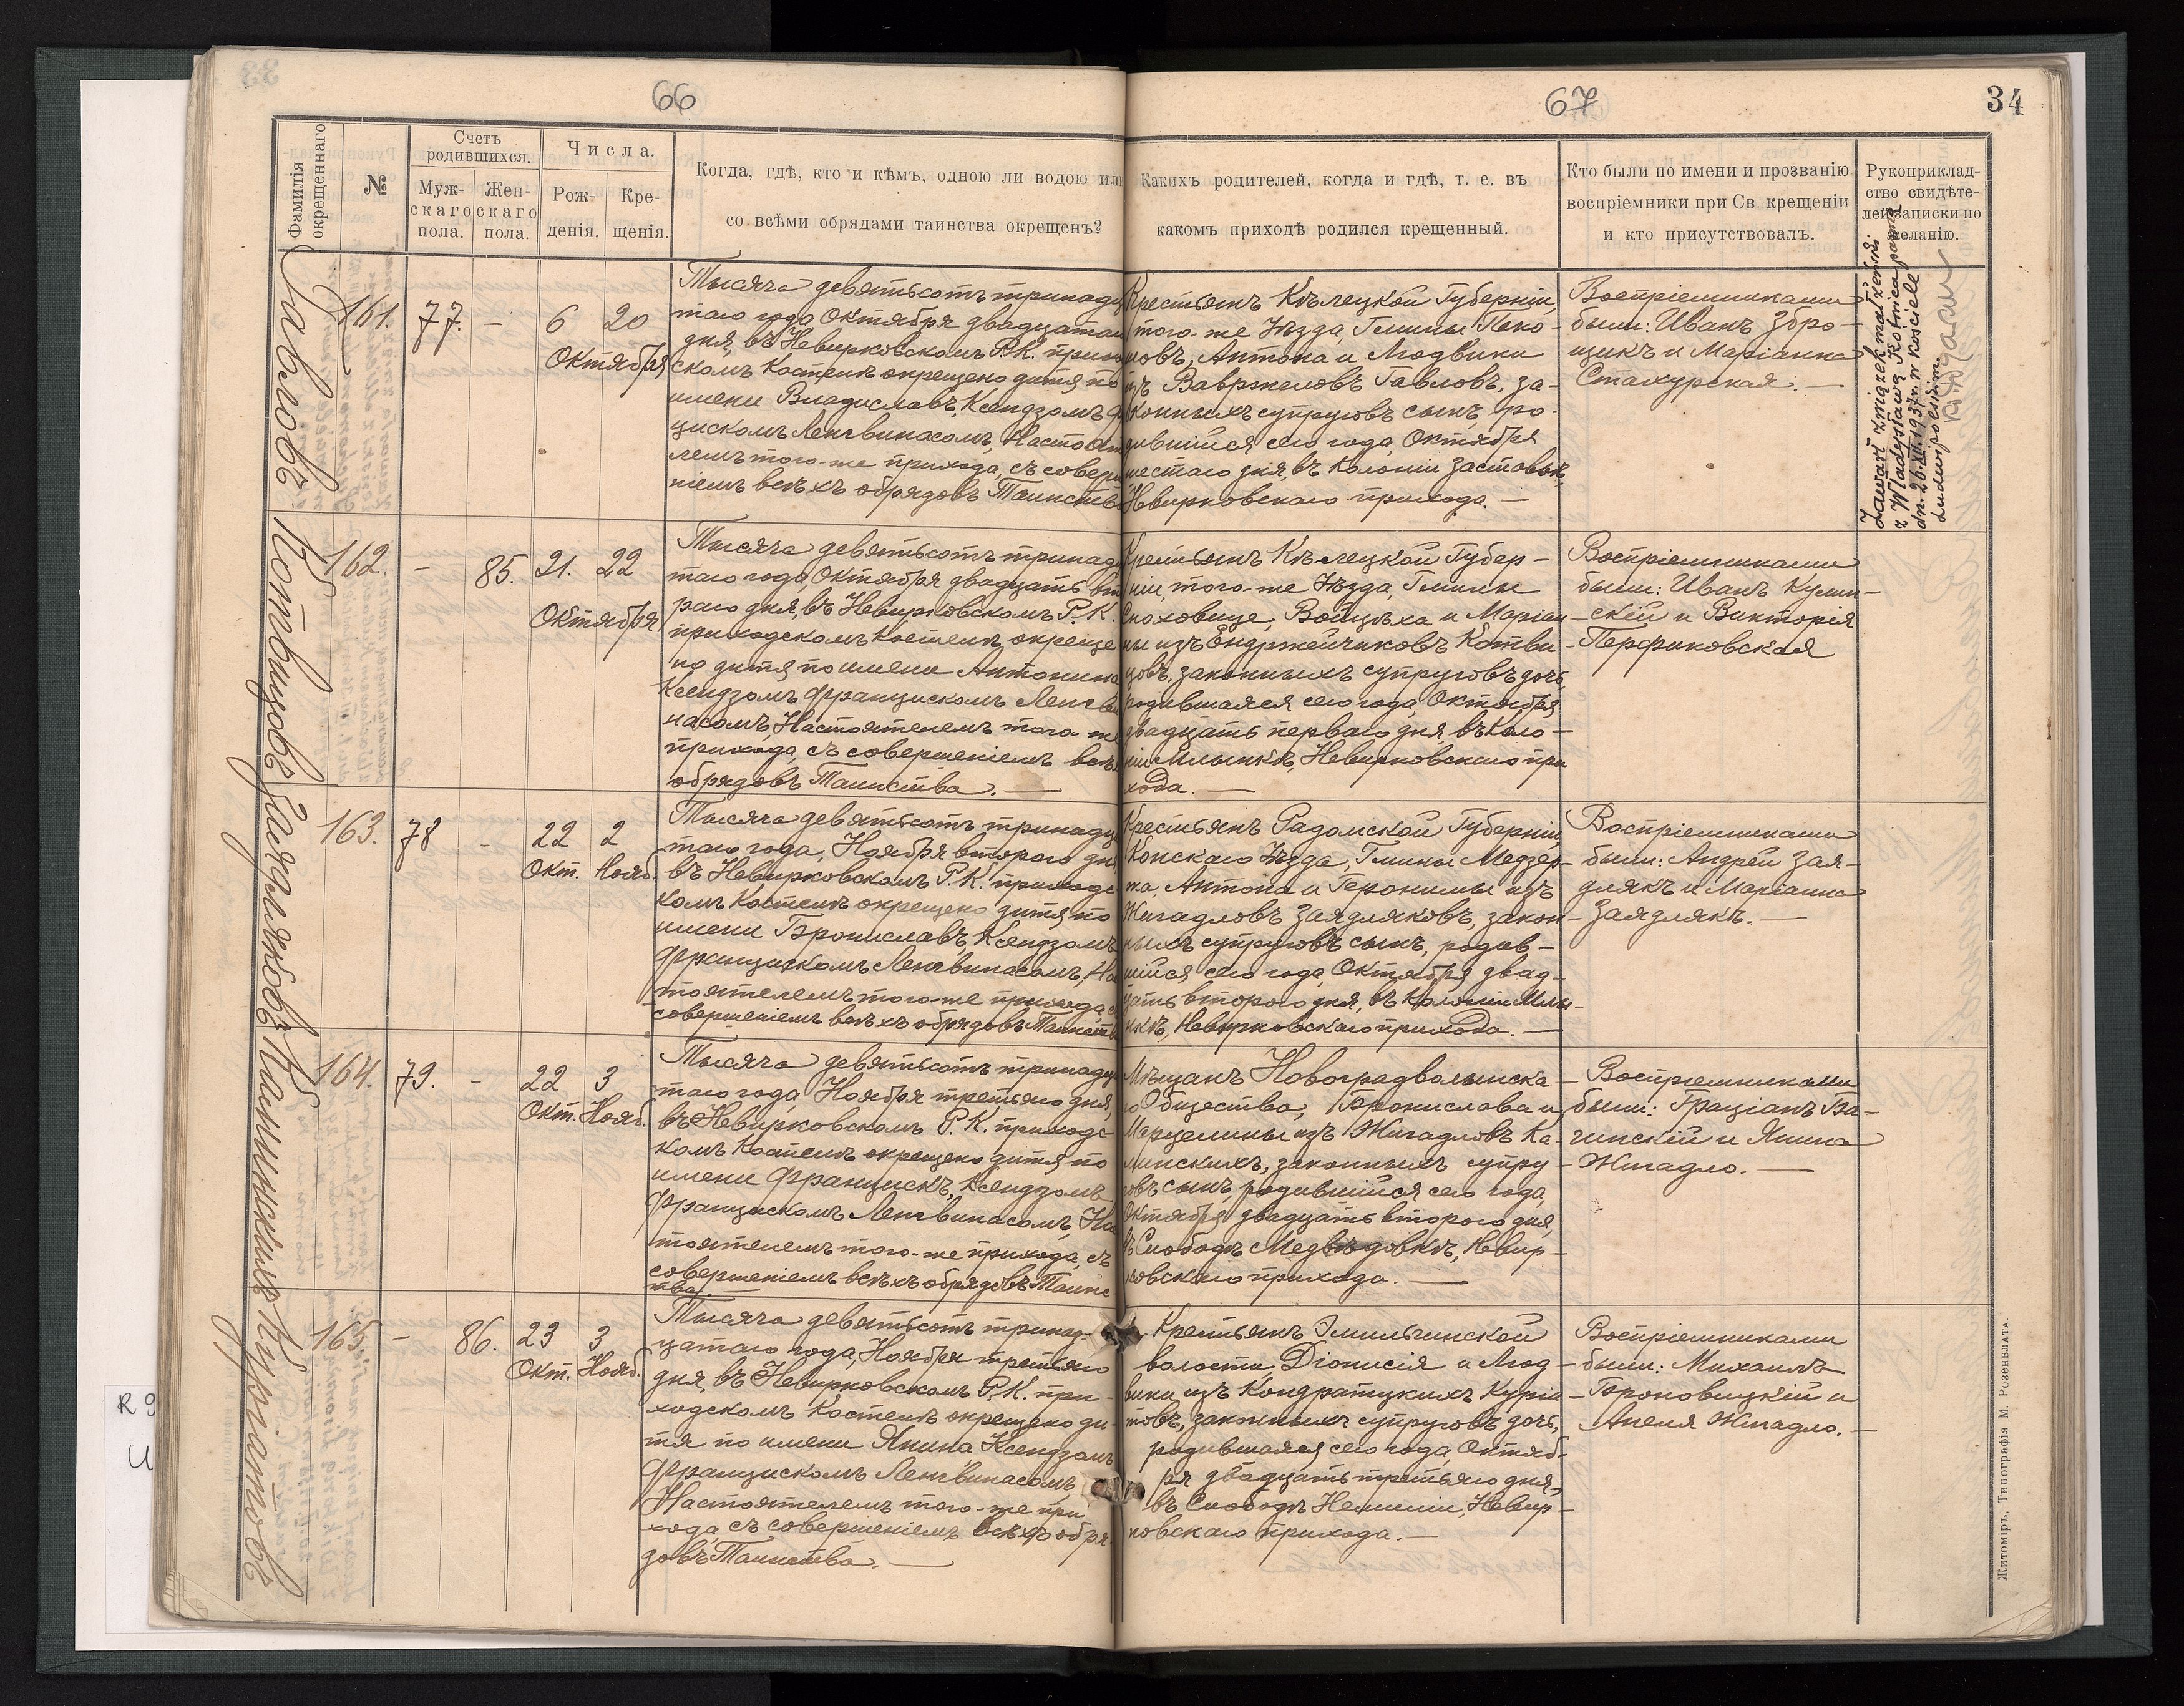 66
67
34
Фамилія окрещеннаго
№
Счетъ родившихся.
Мужскаго пола.
Женскаго пола.
Числа.
Рожденія.
Крещенія.
Когда, гдѣ, кто и кѣмъ, одною ли водою или
со всѣми обрядами таинства окрещенъ?
Какихъ родителей, когда и гдѣ, т. е. въ
какомъ приходѣ родился крещенный.
Кто были по имени и прозванію
воспріемники при Св. крещеніи
и кто присутствовалъ.
Рукоприклад-
ство свидѣте-
лей записки по
желанію.
Гавловъ
161.
77.
-
6 20
Октября
Тысяча девятьсотъ тринадца
таго года Октября двадцатаго
дня, въ Невирковскомъ Р.К. приход
скомъ Костелѣ окрещено дитя по
имени Владиславъ, Ксендзомъ Фран
цискомъ Ленгвинасомъ, Настояте
лемъ того-же прихода, съ соверше
ніемъ всѣхъ обрядовъ Таинства
Крестьянъ Кѣлецкой Губерніи,
того-же Уѣзда, Гмины Пеко-
шовъ, Антона и Людвики
изъ Вавржеловъ Гавловъ, за-
конныхъ супруговъ сынъ, ро-
дившійся сего года, Октября
шестаго дня, въ Колоніи Заставье,
Невирковскаго прихода. —
Воспріемниками
были: Иванъ Збро-
щикъ и Маріанна
Стахурская. —
Zawarł związek małżeński
z Władysławą Kotnicą panną
dn. 26.XII.1937 r. w kościele
Ludwipolskim.
Котвицовъ
162.
-
85.
21. 22
Октября
Тысяча девятьсотъ тринадца
таго года, Октября двадцать вто
раго дня, въ Невирковскомъ Р. К.
приходскомъ костелѣ окреще
но дитя по имени Антонина
Ксендзомъ Францискомъ Ленгви
насомъ, Настоятелемъ того-же
прихода, съ совершеніемъ всѣхъ
обрядовъ Таинства. —
Крестьянъ Кѣлецкой Губер-
ніи того-же Уѣзда, Гмины
Снохович, Войцѣха и Маріан
ны изъ Ендржейчиковъ Котви-
цовъ, законныхъ супруговъ дочь,
родившаяся сего года, Октября
двадцать перваго дня, въ Коло-
ніи Млынкѣ, Невирковскаго при
хода. —
Воспріемниками
были: Иванъ Кумин-
скій и Викторія
Перфиковская
Заядляковъ
163.
78
-
22 2
Окт. Нояб.
Тысяча девятьсотъ тринадца
таго года, Ноября втораго дня
въ Невирковскомъ Р. К. приходс
комъ Костелѣ окрещено дитя по
имени Брониславъ, Ксендзомъ
Францискомъ Ленгвинасомъ, Нас
тоятелемъ того-же прихода, съ
совершеніемъ всѣхъ обрядовъ Таинства
Крестьянъ Радомской Губерніи,
Конскаго Уѣзда, Гмины Медзер-
жа, Антона и Геронимы изъ
Жигадловъ Заядляковъ, закон-
ныхъ супруговъ сынъ, родив-
шійся сего года, Октября двад-
цать второго дня, въ Колоніи Млы-
нкѣ, Невирковскаго прихода. —
Воспріемниками
были: Андрей Зая-
длякъ и Маріанна
Заядлякъ. —
Каминскихъ
164.
79.
-
22 3
Окт. Нояб.
Тысяча девятьсотъ тринадца
таго года, Ноября третьяго дня
въ Невирковскомъ Р. К. приходс
комъ Костелѣ окрещено дитя по
имени Францискъ, Ксендзомъ
Францискомъ Ленгвинасомъ, Нас
тоятелемъ того-же прихода, съ
совершеніемъ всѣхъ обрядовъ Таинс
тва. —
Мѣщанъ Новоградволынска-
го Общества, Бронислава и
Марцелины изъ Жигадловъ Ка-
минскихъ, законныхъ супру-
говъ сынъ, родившійся сего года,
Октября двадцать второго дня,
въ Слободѣ Медвѣдовкѣ, Невир-
ковскаго прихода. —
Воспріемниками
были: Граціанъ Ба-
гинскій и Янина
Жигадло. —
Куріатовъ
165.
-
86.
23 3
Окт. Нояб.
Тысяча девятьсотъ тринад-
цатаго года, Ноября третьяго
дня, въ Невирковскомъ Р.К. при-
ходскомъ Костелѣ окрещено ди-
тя по имени Янина Ксендзомъ
Францискомъ Ленгвинасомъ,
Настоятелемъ того-же при
хода, съ совершеніемъ всѣхъ обря
довъ Таинства. —
Крестьянъ Эмильчинской
волости, Діонисія и Люд-
вики изъ Кондратцкихъ Куріа
товъ, законныхъ супруговъ дочь,
родившаяся сего года, Октяб-
ря двадцать третьяго дня,
въ Слободѣ Немиліи, Невир-
ковскаго прихода. —
Воспріемниками
были: Михаилъ
Броновицкій и
Анеля Жигадло. —
Житоміръ, Типографія М. Розенблата.
R 9